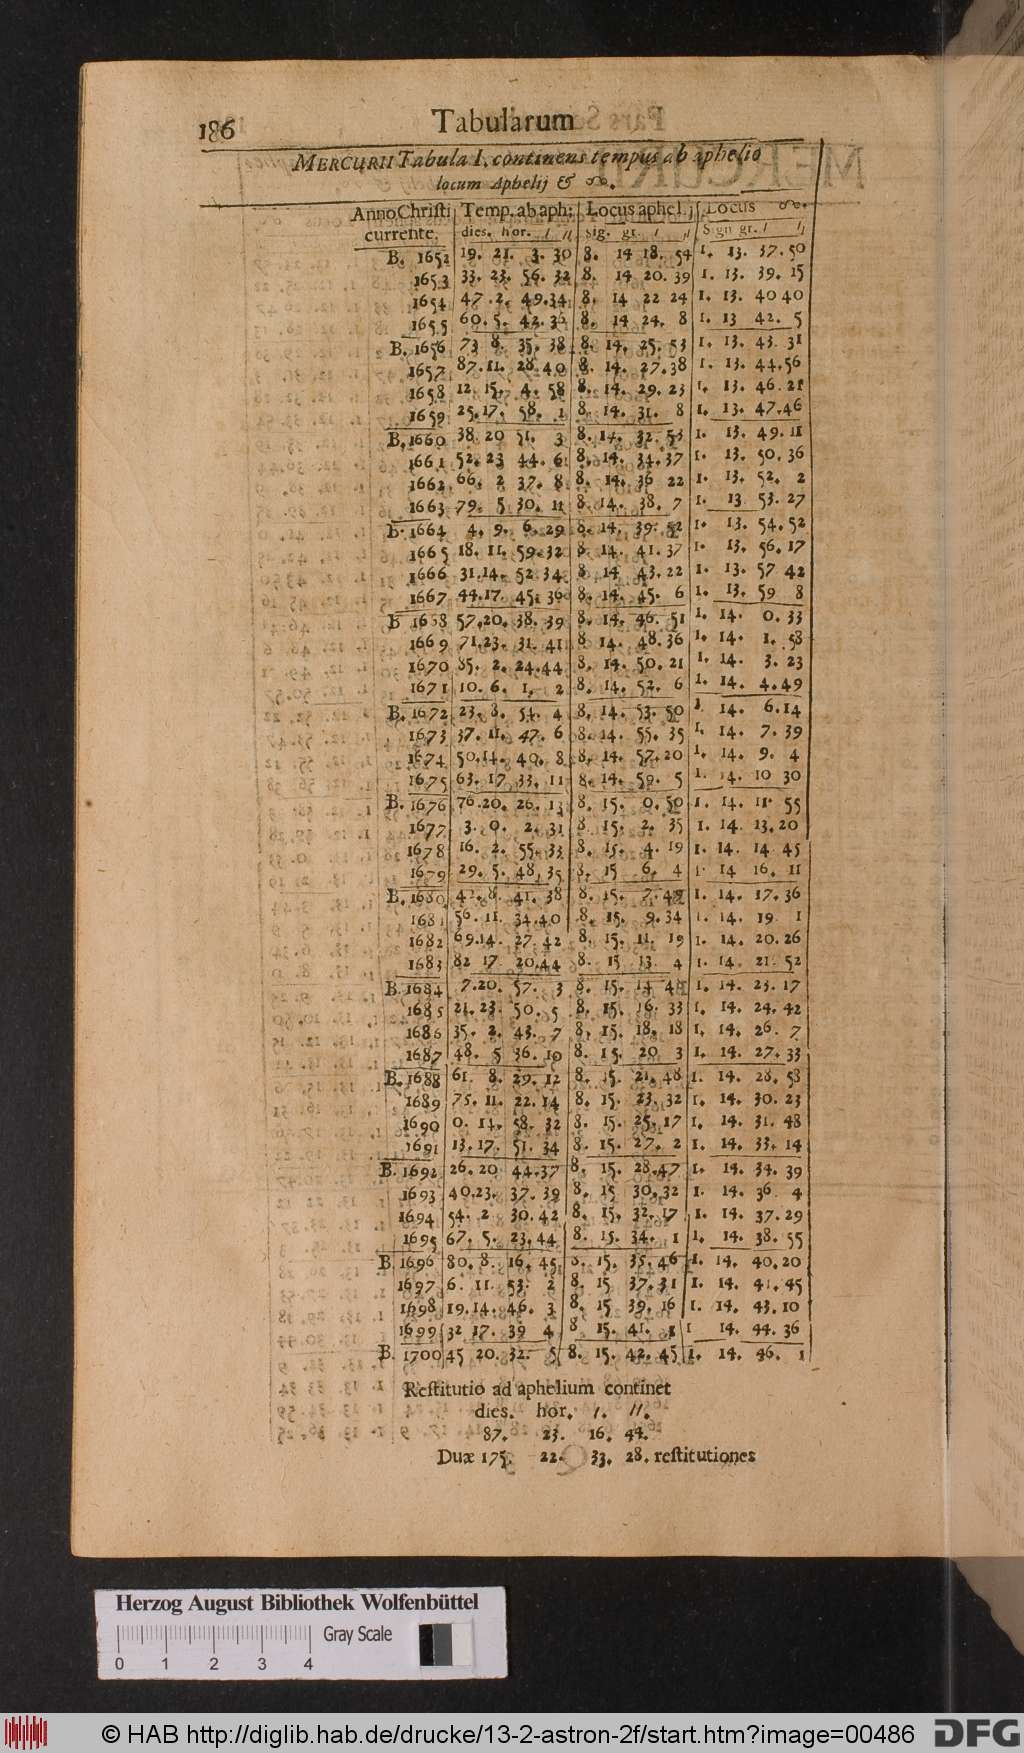 186 Tabularum
MERCURII Tabula I. continens tempus ab aphelio
locum Aphelij & ☊.
Anno Christi Temp. ab aph: Locus aphel. Locus ☊.
currente. dies. hor. / // sig. gr. / // Sign gr. / //
B. 1652 19. 21. 3. 30 8. 14 18. 54 1. 13. 37. 50
1653 33. 23. 56. 32 8. 14 20. 39 1. 13. 39. 15
1654 47. 2. 49. 34 8. 14 22 24 1. 13. 40 40
1655 60. 5. 42. 36 8. 14 24. 8 1. 13 42. 5
B. 1656 73 8. 35. 38 8. 14. 25. 53 1. 13. 43. 31
1657 87. 11. 28. 40 8. 14. 27. 38 1. 13. 44. 56
1658 12 15. 4. 58 8. 14. 29. 23 1. 13. 46. 21
1659 25. 17. 58. 1 8. 14. 31. 8 1. 13. 47. 46
B. 1660 38 20 51. 3 8. 14. 32. 53 1. 13. 49. 11
1661 52. 23 44. 6 8. 14. 34. 37 1. 13. 50. 36
1662 66. 2 37. 8 8. 14. 36 22 1. 13. 52. 2
1663 79. 5 30. 11 8. 14. 38. 7 1. 13 53. 27
B. 1664 4. 9. 6. 29 8. 14. 39. 52 1. 13. 54. 52
1665 18. 11. 59. 32 8. 14. 41. 37 1. 13. 56. 17
1666 31. 14. 52 34 8. 14 43. 22 1. 13. 57 42
1667 44. 17. 45. 36 8. 14. 45. 6 1. 13. 59 8
B 1668 57. 20. 38. 39 8. 14. 46. 51 1. 14. 0. 33
1669 71. 23. 31. 41 8 14. 48. 36 1. 14. 1. 58
1670 85. 2. 24. 44 8. 14. 50. 21 1. 14. 3. 23
1671 10. 6. 1. 2 8. 14. 52. 6 1. 14. 4. 49
B. 1672 23. 8. 54. 4 8. 14. 53. 50 1 14. 6. 14
1673 37. 11. 47. 6 8. 14. 55. 35 1. 14. 7. 39
1674 50. 14. 40. 8 8. 14. 57. 20 1. 14. 9. 4
1675 63. 17 33. 11 8. 14. 59. 5 1. 14. 10 30
B. 1676 76. 20. 26. 13 8. 15. 0. 50 1. 14. 11. 55
1677 3. 0. 2. 31 8 15. 2. 35 1. 14. 13. 20
1678 16. 2. 55. 33 8. 15. 4. 19 1. 14. 14 45
1679 29. 5. 48. 35 8. 15 6. 4 1. 14 16. 11
B. 1680 42. 8. 41. 38 8. 15. 7. 1. 14. 17. 36
1681 56. 11. 34. 40 8. 15. 9. 34 1. 14. 19 1
1682 69. 14. 27. 42 8. 15. 11. 19 1. 14. 20. 26
1683 82 17. 20. 44 8. 15 13. 4 1. 14. 21. 52
B. 1684 7. 20. 57. 3 8. 15. 14 48 1. 14. 23. 17
1685 21. 23. 50. 5 8. 15. 16. 33 1. 14. 24. 42
1686 35. 2. 43. 7 8. 15. 18. 18 1. 14. 26. 7
1687 48. 5 36. 10 8. 15. 20 3 1. 14. 27. 33
B. 1688 61. 8. 29. 12 8. 15. 21. 48 1. 14. 28. 58
1689 75. 11. 22. 14 8. 15. 23. 32 1. 14. 30. 23
1690 0. 14. 58. 32 8. 15. 25. 17 1. 14. 31. 48
1691 13. 17. 51. 34 8. 15. 27. 2 1. 14. 33. 14
B. 1692 26. 20 44. 37 8. 15. 28. 47 1. 14. 34. 39
1693 40. 23. 37. 39 8. 15 30. 32 1. 14. 36 4
1694 54. 2 30. 42 8. 15. 32. 17 1. 14. 37. 29
1695 67. 5. 23. 44 8. 15. 34. 1 1. 14. 38. 55
B. 1696 80. 8. 16. 45 8. 15. 35. 46 1. 14. 40. 20
1697 6. 11. 53. 2 8. 15 37. 31 1. 14. 41. 45
1698 19. 14. 46. 3 8. 15 39. 16 1. 14. 43. 10
1699 32 17. 39 4 8 15. 41. 1 1 14. 44. 36
B. 1700 45 20. 32. 5 8. 15. 42. 45 1. 14. 46. 1
Restitutio ad aphelium continet
dies. hor. /. //.
87. 23. 16. 44.
Duæ 175. 22. 33. 28. restitutiones
Herzog August Bibliothek Wolfenbüttel
Gray Scale
0 1 2 3 4
© HAB http://diglib.hab.de/drucke/13-2-astron-2f/start.htm?image=00486 DFG